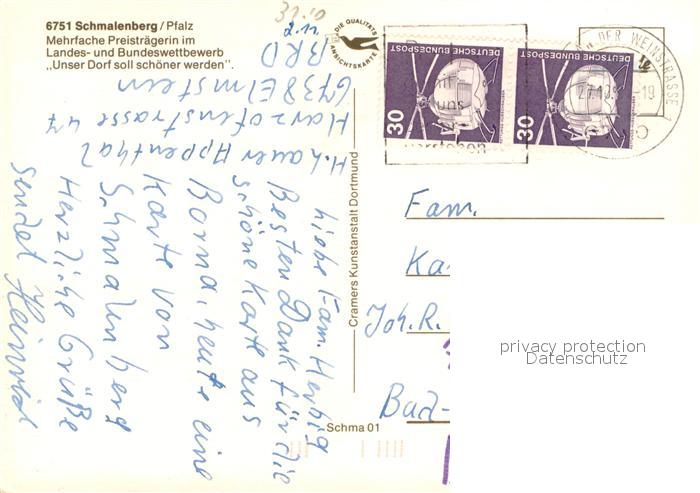 6751 Schmalenberg / Pfalz
Mehrfache Preisträgerin im
Landes- und Bundeswettbewerb
„Unser Dorf soll schöner werden".
31.10
2.11.
DIE QUALITÄTS
ANSICHTSKARTE
DEUTSCHE BUNDESPOST
30
DEUTSCHE BUNDESPOST
30
DER WEINSTRASSE 1
-19
verstehen
H. Lauer Appenthal
Harzofenstrasse 47
6738 Elmstein
BRD
Liebe Fam. Herbig
Besten Dank für die
schöne Karte aus
Borna, heute eine
Karte von
Schmalenberg
Herzliche Grüße
sendet Heinrich
Cramers Kunstanstalt Dortmund
Schma 01
Fam.
Ka
Joh. R.
Bad-
privacy protection
Datenschutz